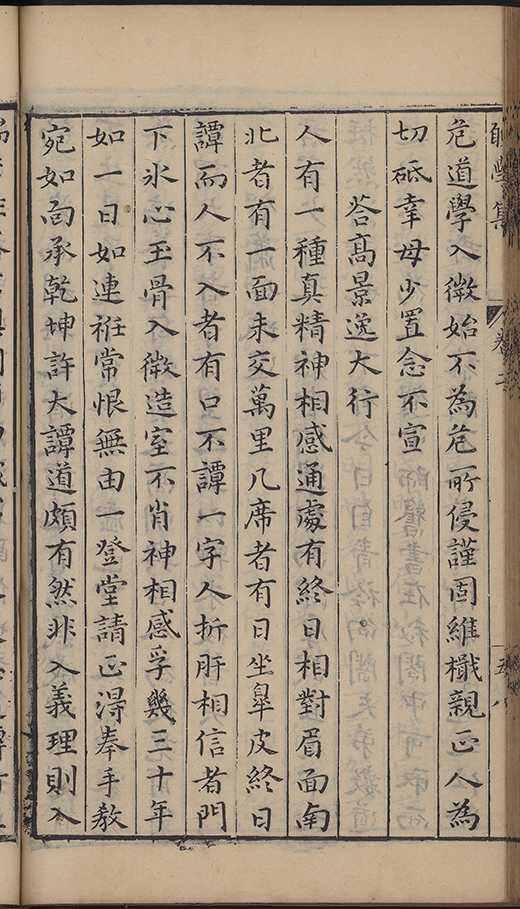 集
危道學入微始不為危所侵謹固維檝親正人為
切砥羣母少置念不宣
荅髙景逸大行
人有一種真精神相感通處有終日相對眉面南
北者有一面未交萬里几席者有日坐臯皮終日
譚而人不入者有口不譚一字人折肝相信者門
下氷心玉骨入微造室不肖神相感孚幾三十年
如一日如連袵常恨無由一登堂請正得奉手教
宛如面承乾坤許大譚道頗有然非入義理則入